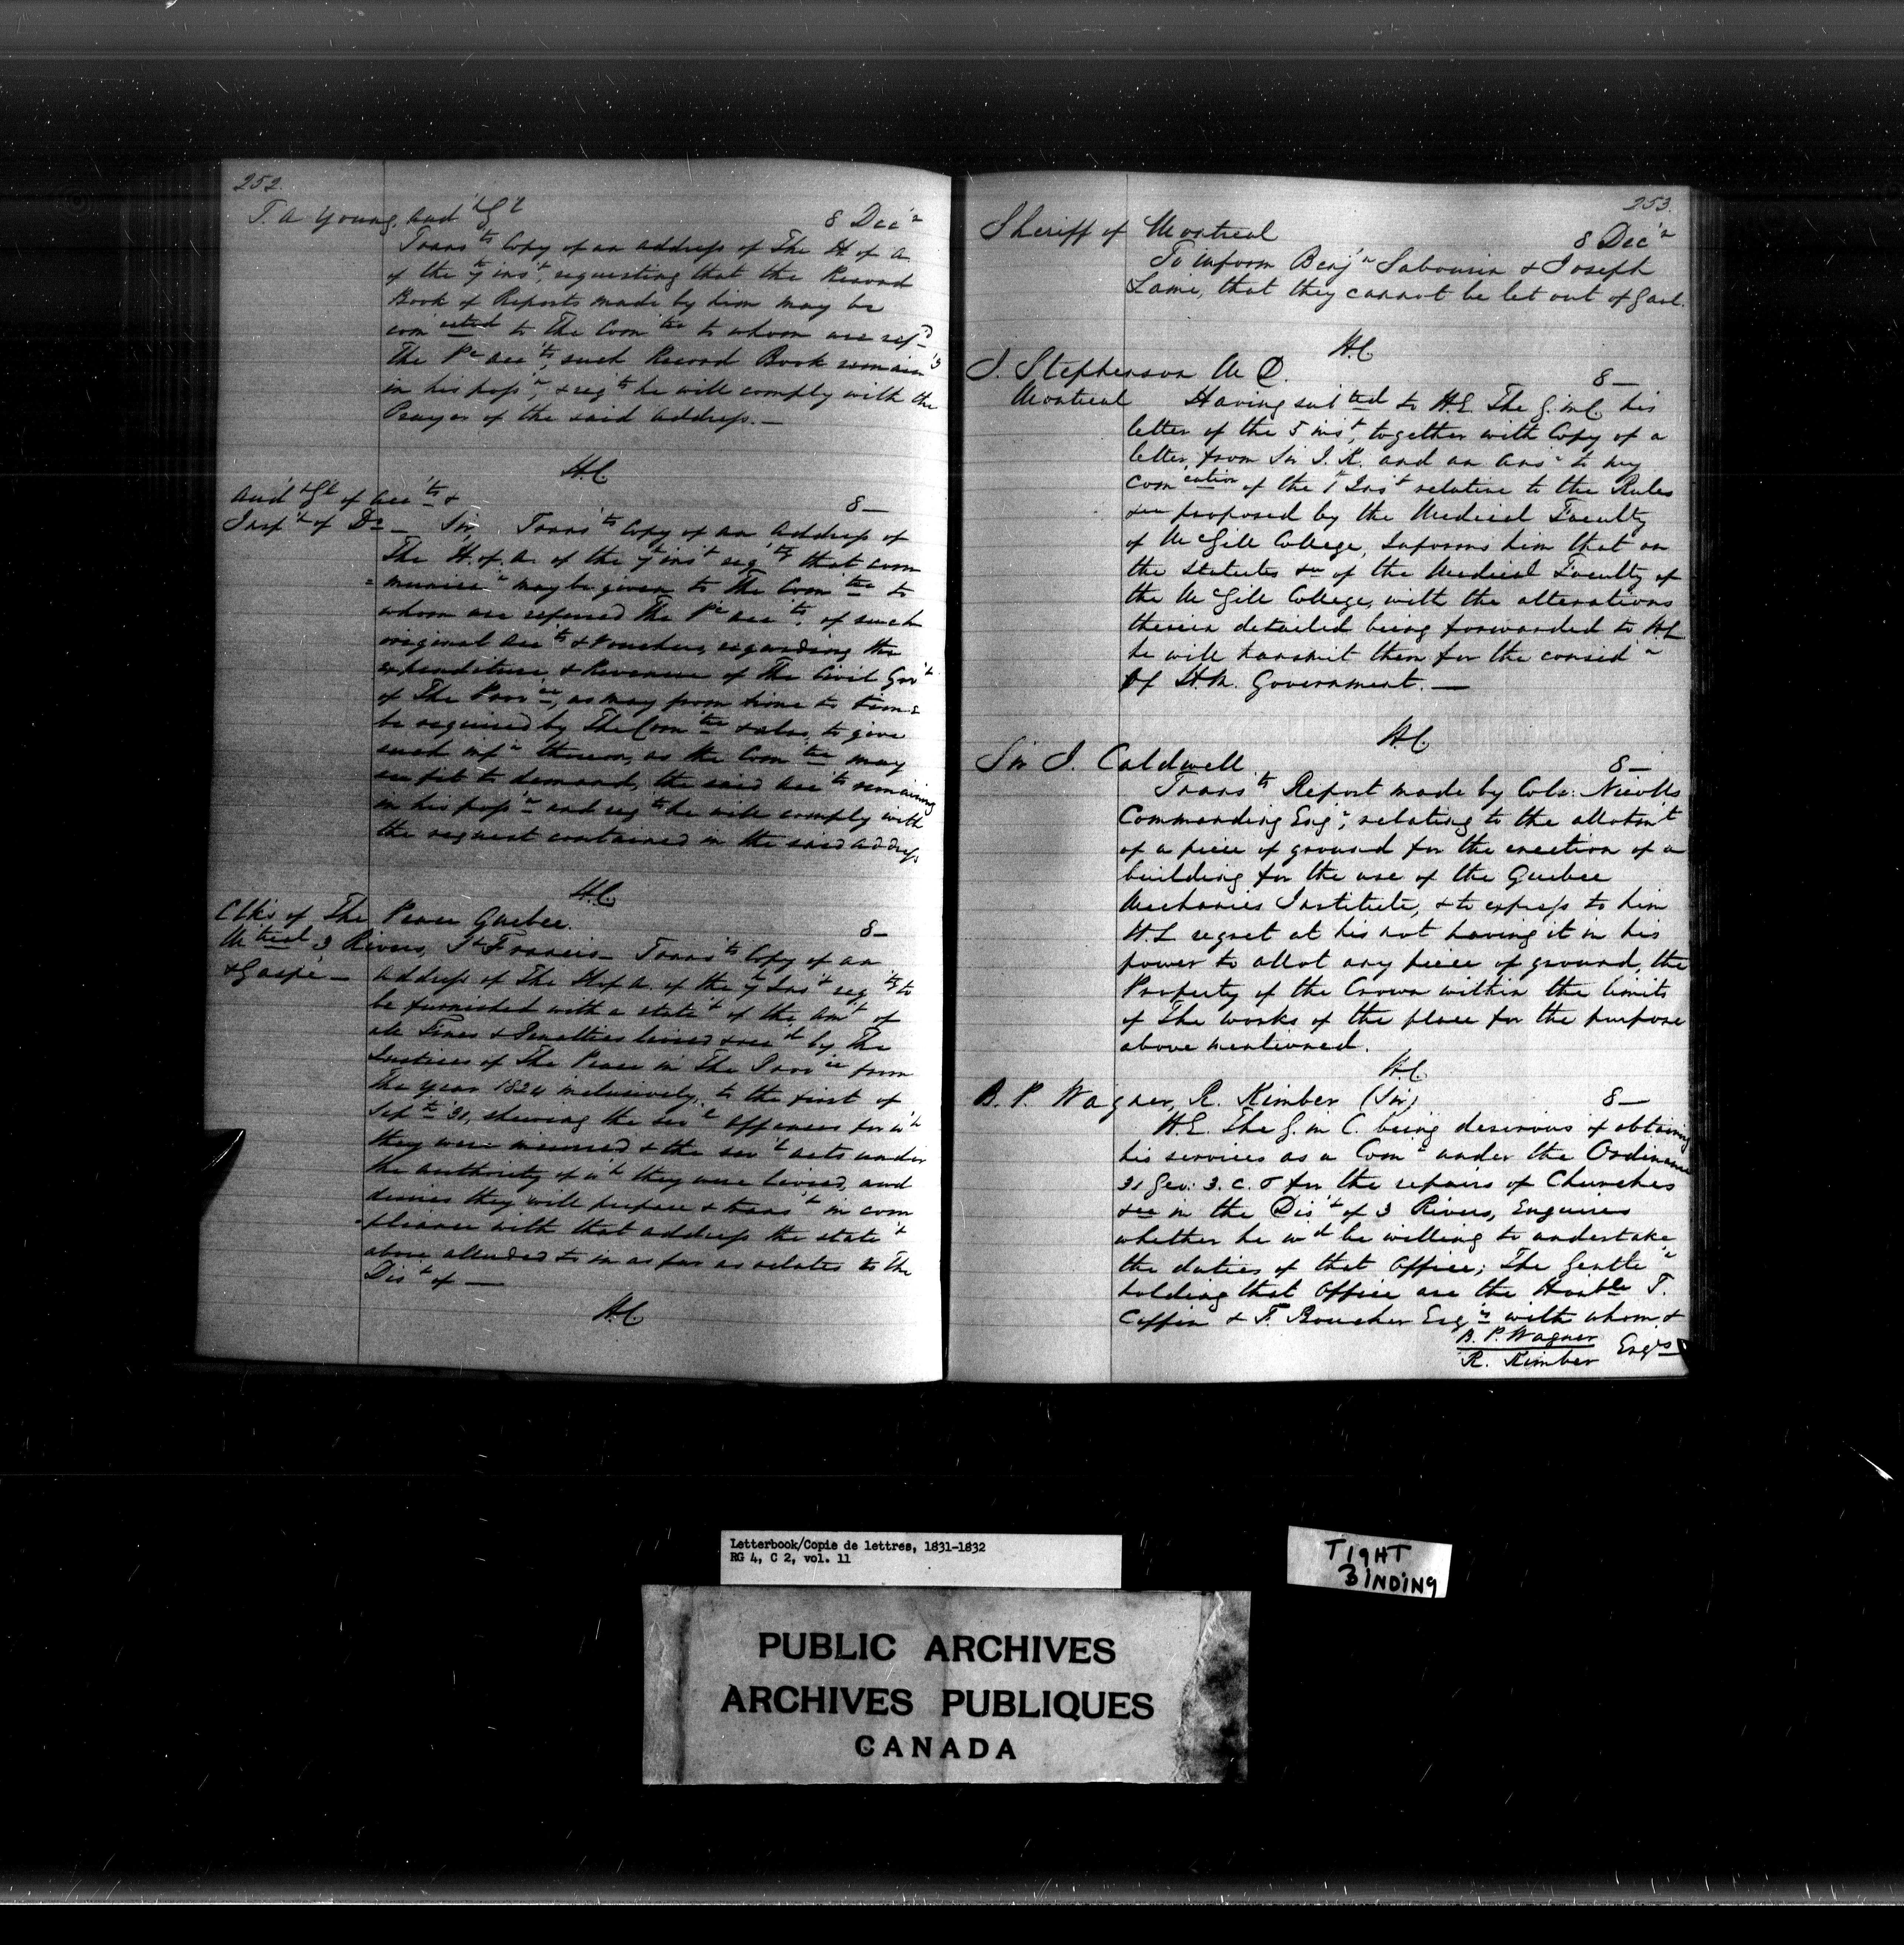 252
T. A Young, Aud'r G'l 8 Dec'r
Trans'ts Copy of an address of The H of A
of the 7th ins't, requesting that the Record
Book of Reports made by him may be
com'cated to The Com'tee to whom are ref'd
The P'c acc'ts, such Record Book remain'g
in his poss'n, & req'ts he will comply with the
Prayer of the said address.—
H.C.
Aud'r G'l of Acc'ts & 8—
Insp'r of Do— Sir, Trans'ts Copy of an Address of
The H. of A. of the 7th ins't req'tg that com
=munica'n may be given to The Com'tee to
whom are referred The P'c acc'ts, of such
original Acc'ts & Vouchers, regarding the
expenditure & Revenue of The Civil Gov't
of The Prov'ce, as may from time to time
be required by The Com'tee & also, to give
such inf'n thereon, as the Com'tee may
see fit to demand, the said acc'ts remaining
in his poss'n and req'ts he will comply with
the request contained in the said address
H.C.
Clks of The Peace Quebec. 8—
M'treal 3 Rivers, St Francis— Trans'ts Copy of an
& Gaspé— address of The H of A. of the 7th Ins't req'tg to
be furnished with a state't of the Am't of
all Fines & Penalties levied & rec'd by The
Justices of The Peace in The Prov'ce from
The year 1824 inclusively, to the first of
Sep'tr '31, shewing the sev'l offences for w'h
they were incurred & the sev'l acts under
the authority of w'h they were levied, and
desires they will prepare & trans't in com
-pliance with that address the state't
above alluded to in as far as relates to The
Dis't of—
H.C.
253.
Sheriff of Montreal 8 Dec'r
To inform Benj'n Sabourin & Joseph
Lame, that they cannot be let out of Gaol.
H.C.
J. Stephenson M D. 8—
Montreal Having sub'ted to H.E. The G. in C. his
letter of the 5 ins't, together with Copy of a
letter from Sir J. K. and an Ans'r to my
com'cation of the 1st Ins't relative to the Rules
&ca proposed by the Medical Faculty
of McGill College, Informs him that on
the statutes &ca of the Medical Faculty of
the McGill College, with the alterations
therein detailed being forwarded to H.L
he will transmit them for the consid'n
of H.M. Government.—
H.C.
Sir J. Caldwell 8—
Trans'ts Report made by Colo: Nicolls
Commanding Eng'r, relating to the allotm't
of a piece of ground for the erection of a
building for the use of the Quebec
Mechanics Institute, & to express to him
H.L regret at his not having it in his
power to allot any piece of ground, the
Property of the Crown within the limits
of The works of the place for the purpose
above mentioned.
H.C.
B. P. Wagner, R. Kimber (Sir) 8—
H.E. The G. in C. being desirous of obtaining
his services as a Com'r under the Ordinance
31 Geo: 3. c. 6 for the repairs of Churches
&ca in the Dis't of 3 Rivers, Enquires
whether he w'd be willing to undertake
the duties of that Office; The Gentle'n
holding that Office are the Hon'ble T.
Coffin & F. Boucher Esq'rs with whom &
B. P. Wagner
R. Kimber Esq'rs
Letterbook/Copie de lettres, 1831-1832
RG 4, C 2, vol. 11
TIGHT
BINDING
PUBLIC ARCHIVES
ARCHIVES PUBLIQUES
CANADA